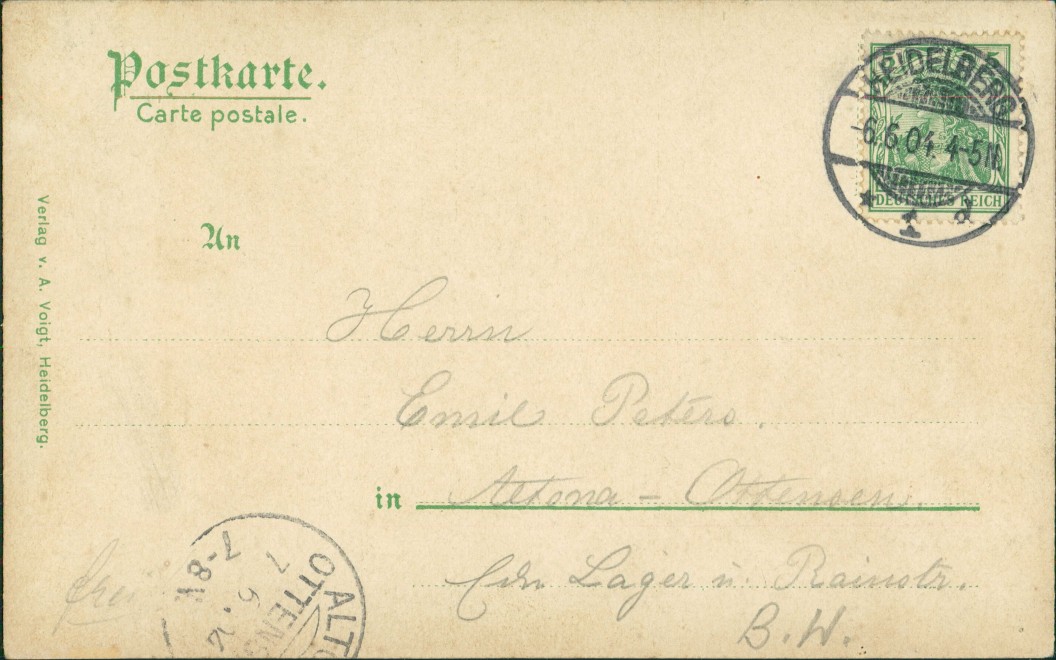 Postkarte.
Carte postale.
HEIDELBERG
-6.6.04. 4-5N.
* 1 d
DEUTSCHES REICH
An
Herrn
Emil Peters.
in Altona - Ottensen.
Lager u. Rainstr.
B. W.
frei
7-8V
7 6.
ALTO
OTTENS
Verlag v. A. Voigt, Heidelberg.